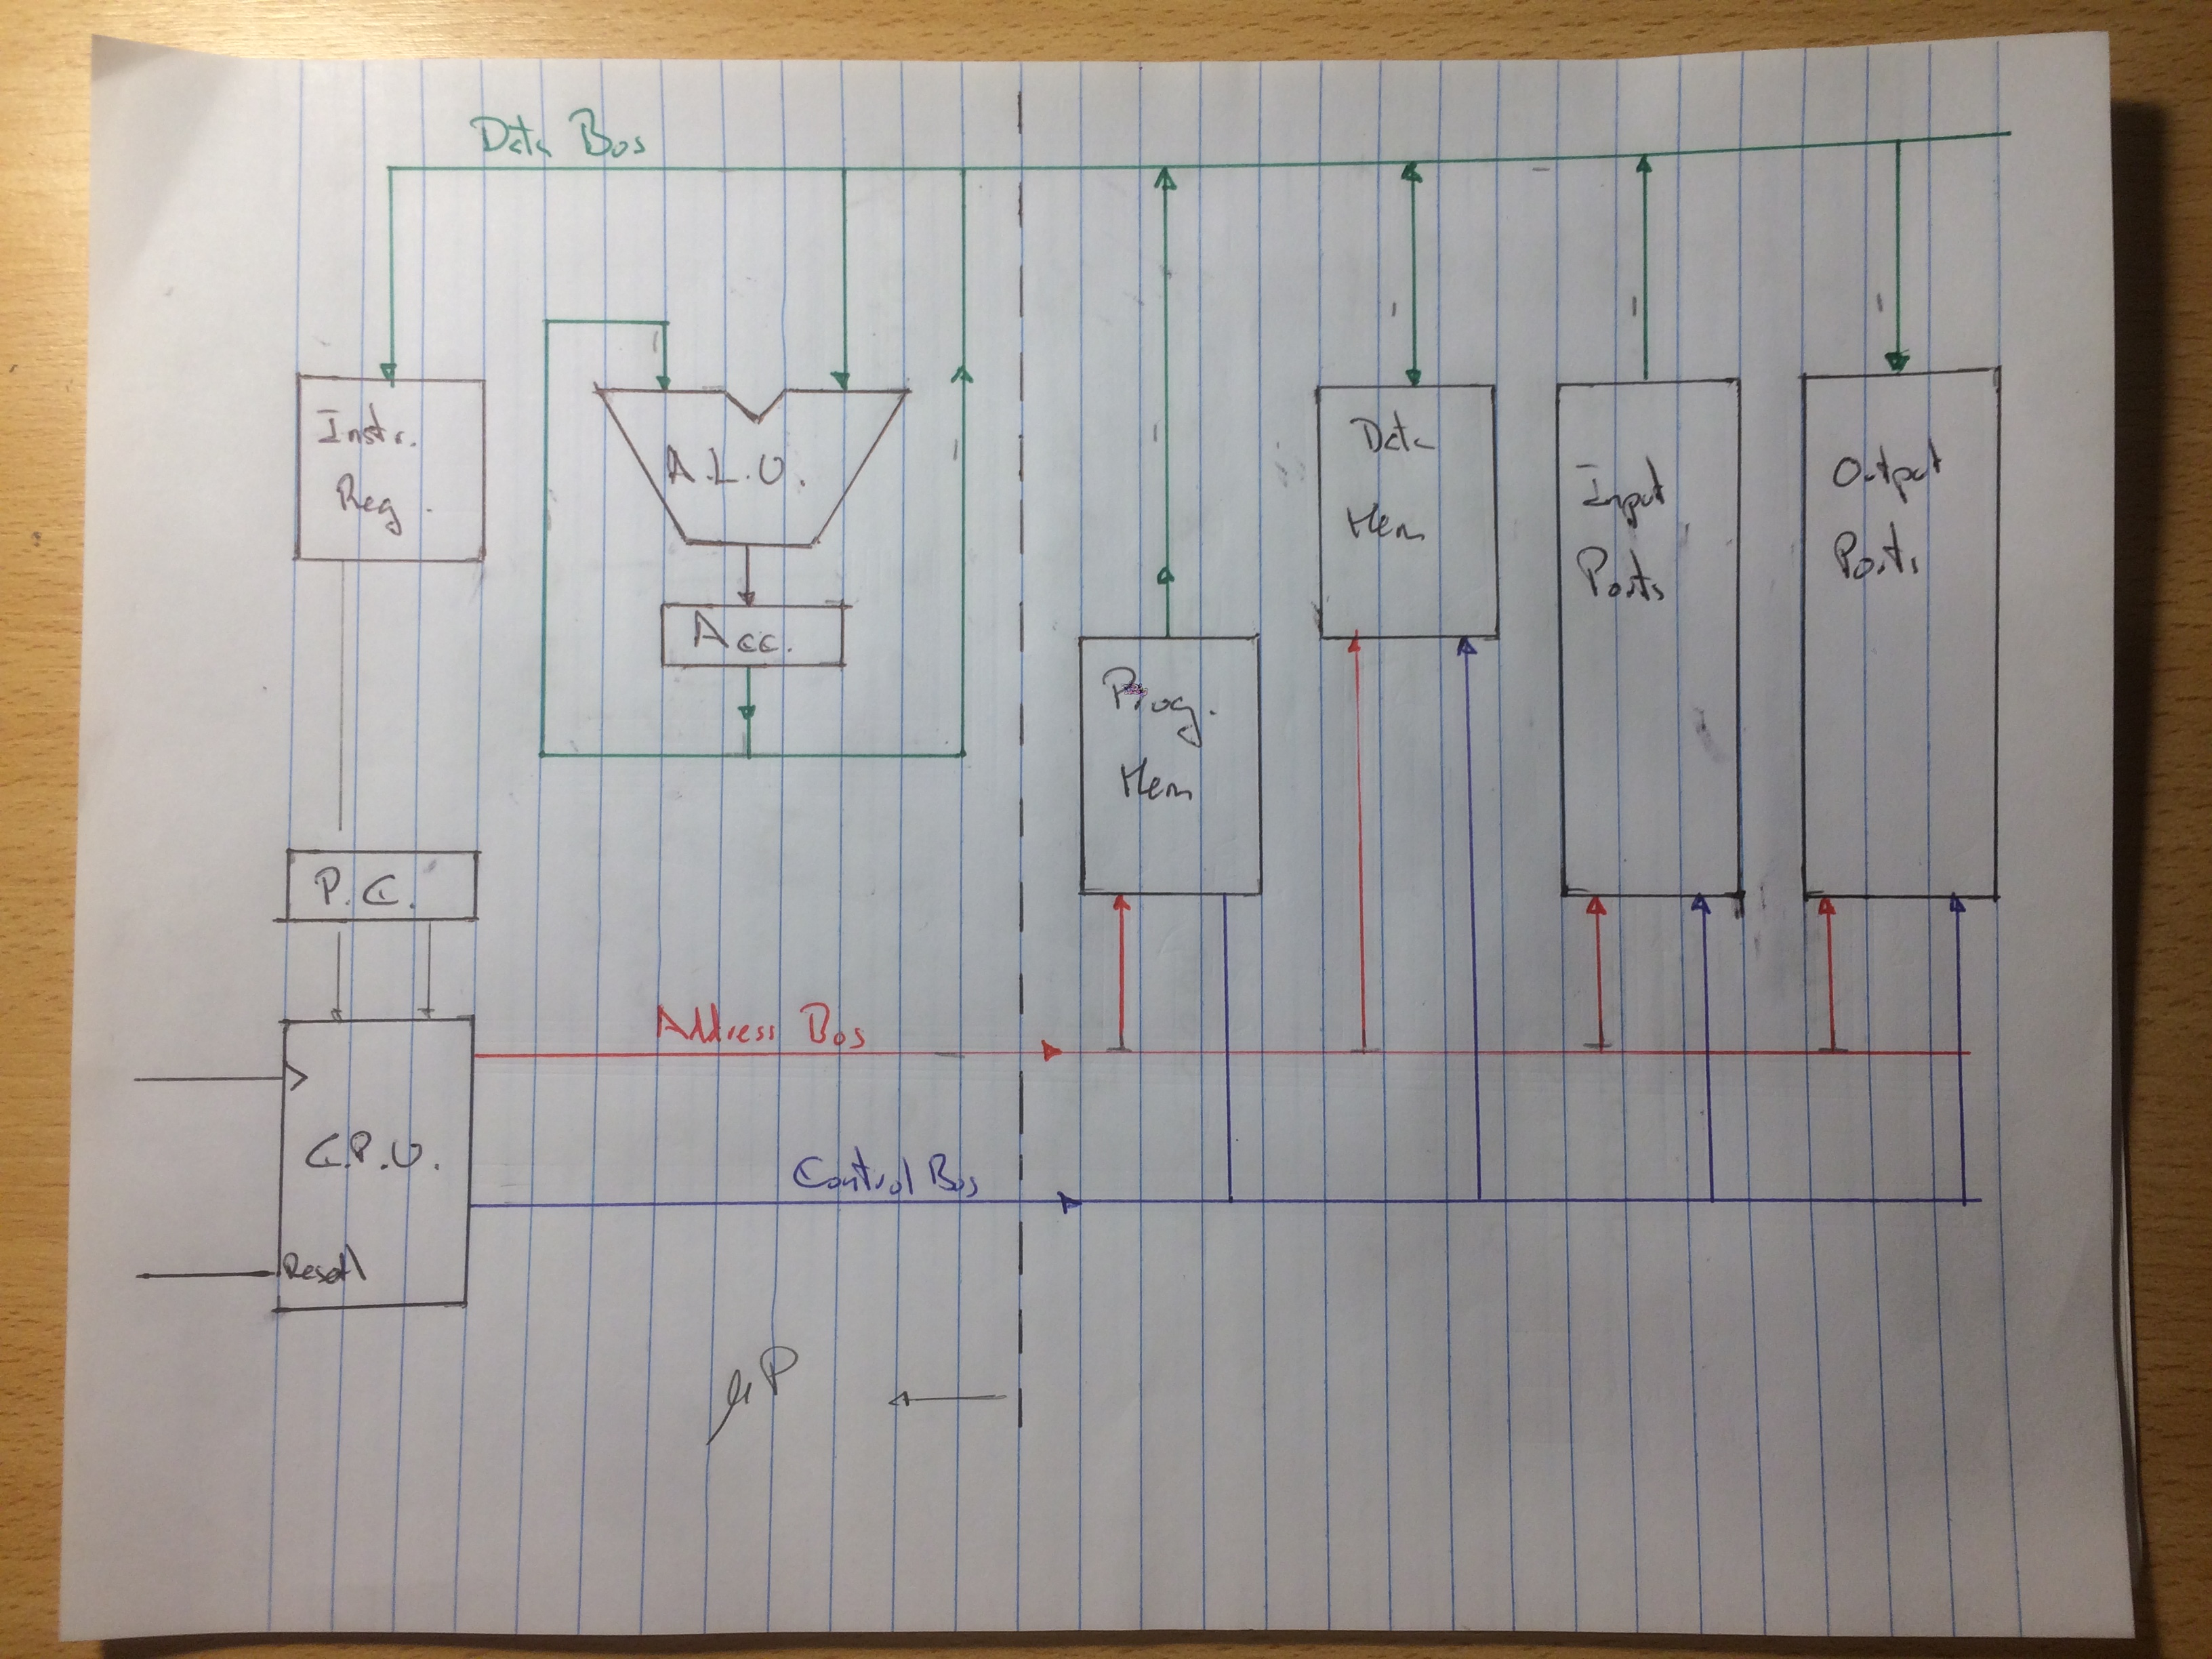 Data Bus
Instr.
Reg.
A.L.U.
Acc.
Prog.
Mem
Data
Mem
Input
Ports
Output
Ports
P.C.
Address Bus
C.P.U.
Control Bus
Reset\
μP